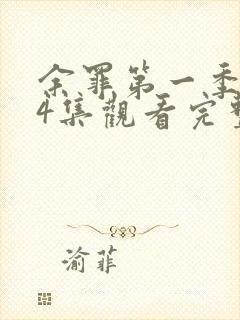 余罪第一季
4集觀看完整
渝菲